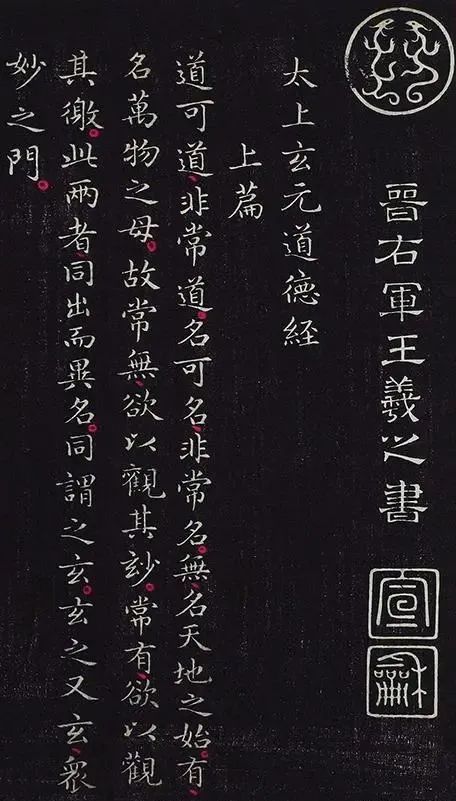 晉右軍王羲之書
宣
龢
太上玄元道德經
上篇
道可道、非常道。名可名、非常名。無、名天地之始。有、
名萬物之母。故常無、欲以觀其玅。常有、欲以觀
其徼。此兩者、同出而異名。同謂之玄。玄之又玄、衆
妙之門。